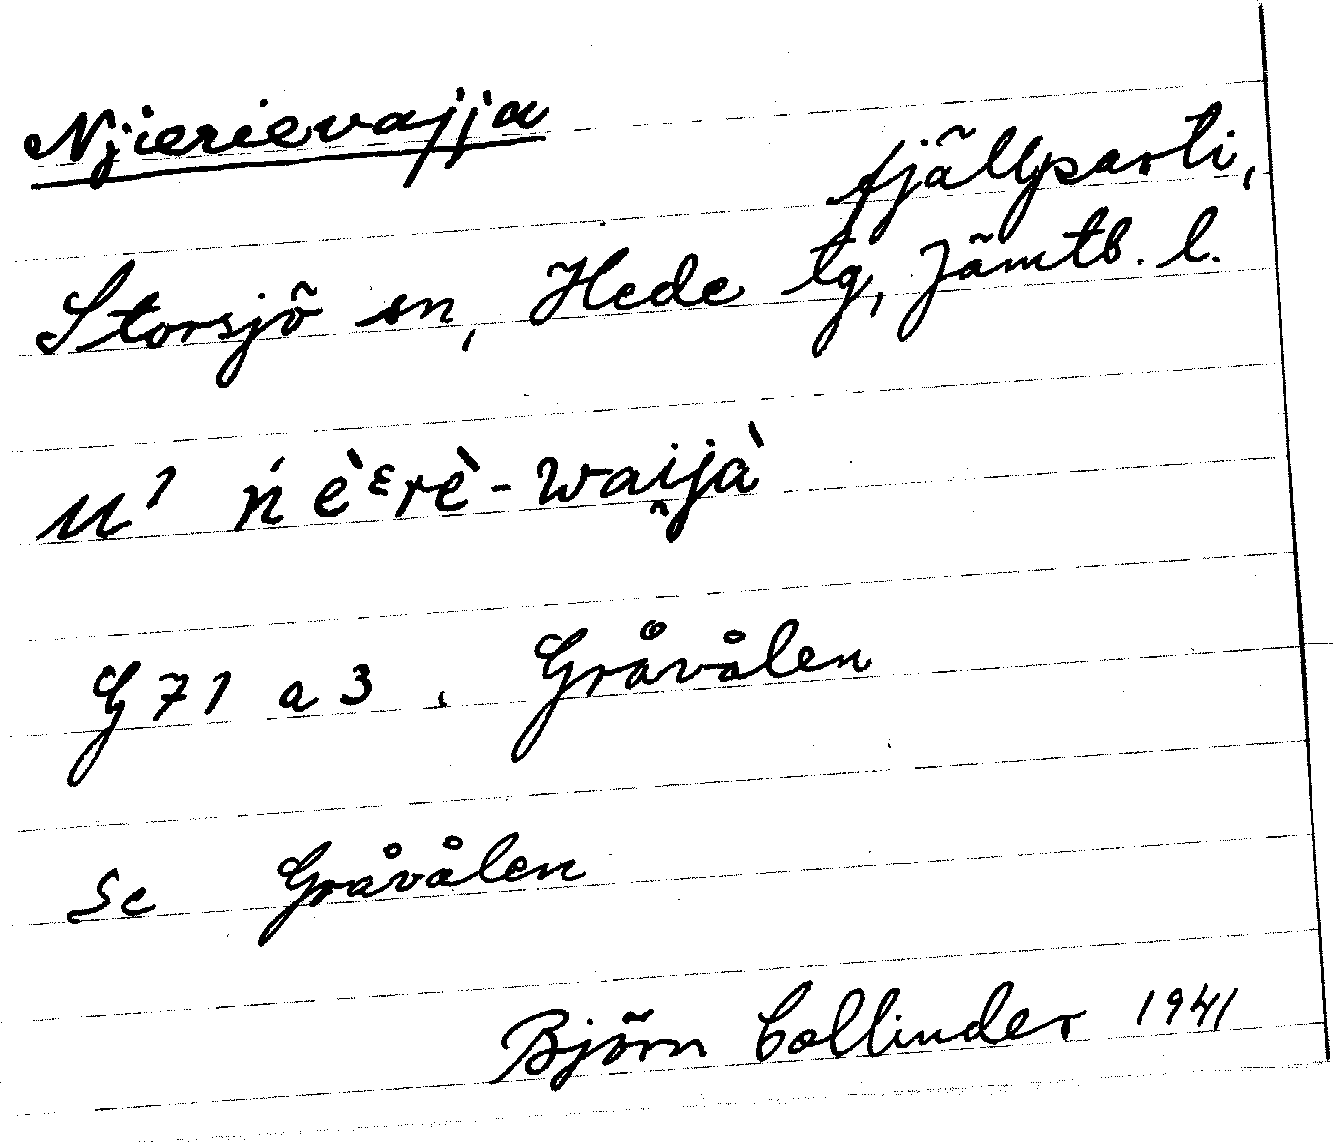 Njierievajja
fjällparti,
Storsjö sn, Hede tg, Jämtl. l.
U¹ ń è ᵋrè - wai̭jà
G 71 a 3 . Gråvålen
Se Gråvålen
Björn Collinder 1941